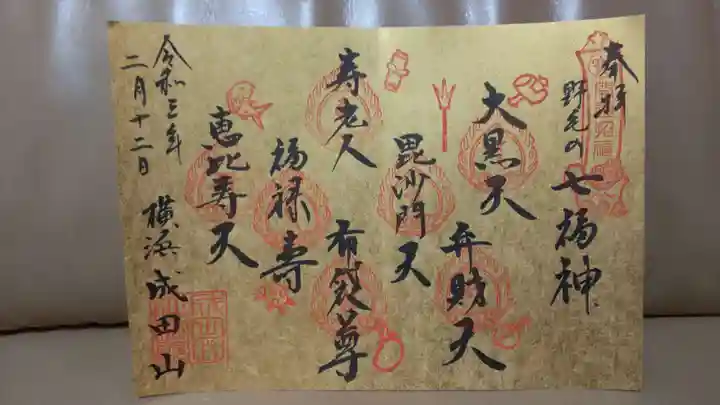 奉拝
野毛の七福神
大黒天
弁財天
毘沙門天
寿老人
布袋尊
福禄寿
恵比寿天
令和三年
二月十二日
横浜成田山